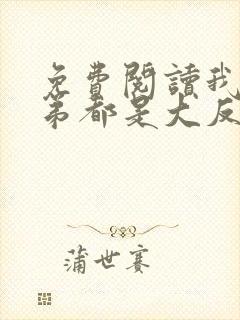 免費閱讀我
弟都是大反
蒲世賽